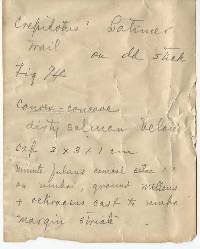 Crepidotus? Latimer
trail on old stick
Fig 74
convex-concave
dirty salmon below
cap 2 x 3 x 1 cm
minute fulvous
on umbo, ground
+ ochraceous cast to umbo
"margin striate"